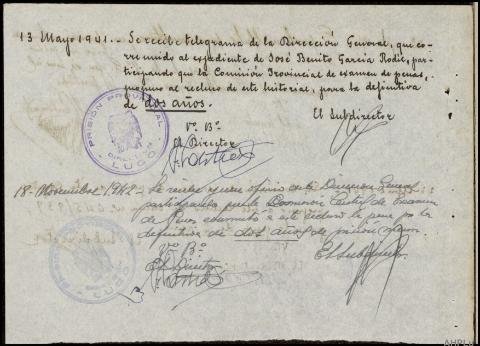 13 Mayo 1941.- Se recibe telegrama de la Dirección General, que co-
rre unido al expediente de José Benito García Rodil, par-
ticipando que la Comisión Provincial de examen de penas,
al recluso de este historial, por la definitiva
de dos años.
El Subdirector
Vº Bº
El Director
PRISIÓN PROVINCIAL
LUGO
18 - Noviembre 1942 - Se recibe oficio de la Dirección General
participando que la Comisión Central de Examen
de Penas a este recluso la pena por la
definitiva de dos años de prisión menor.
Vº Bº
El Director
El Subdirector
AHPLu